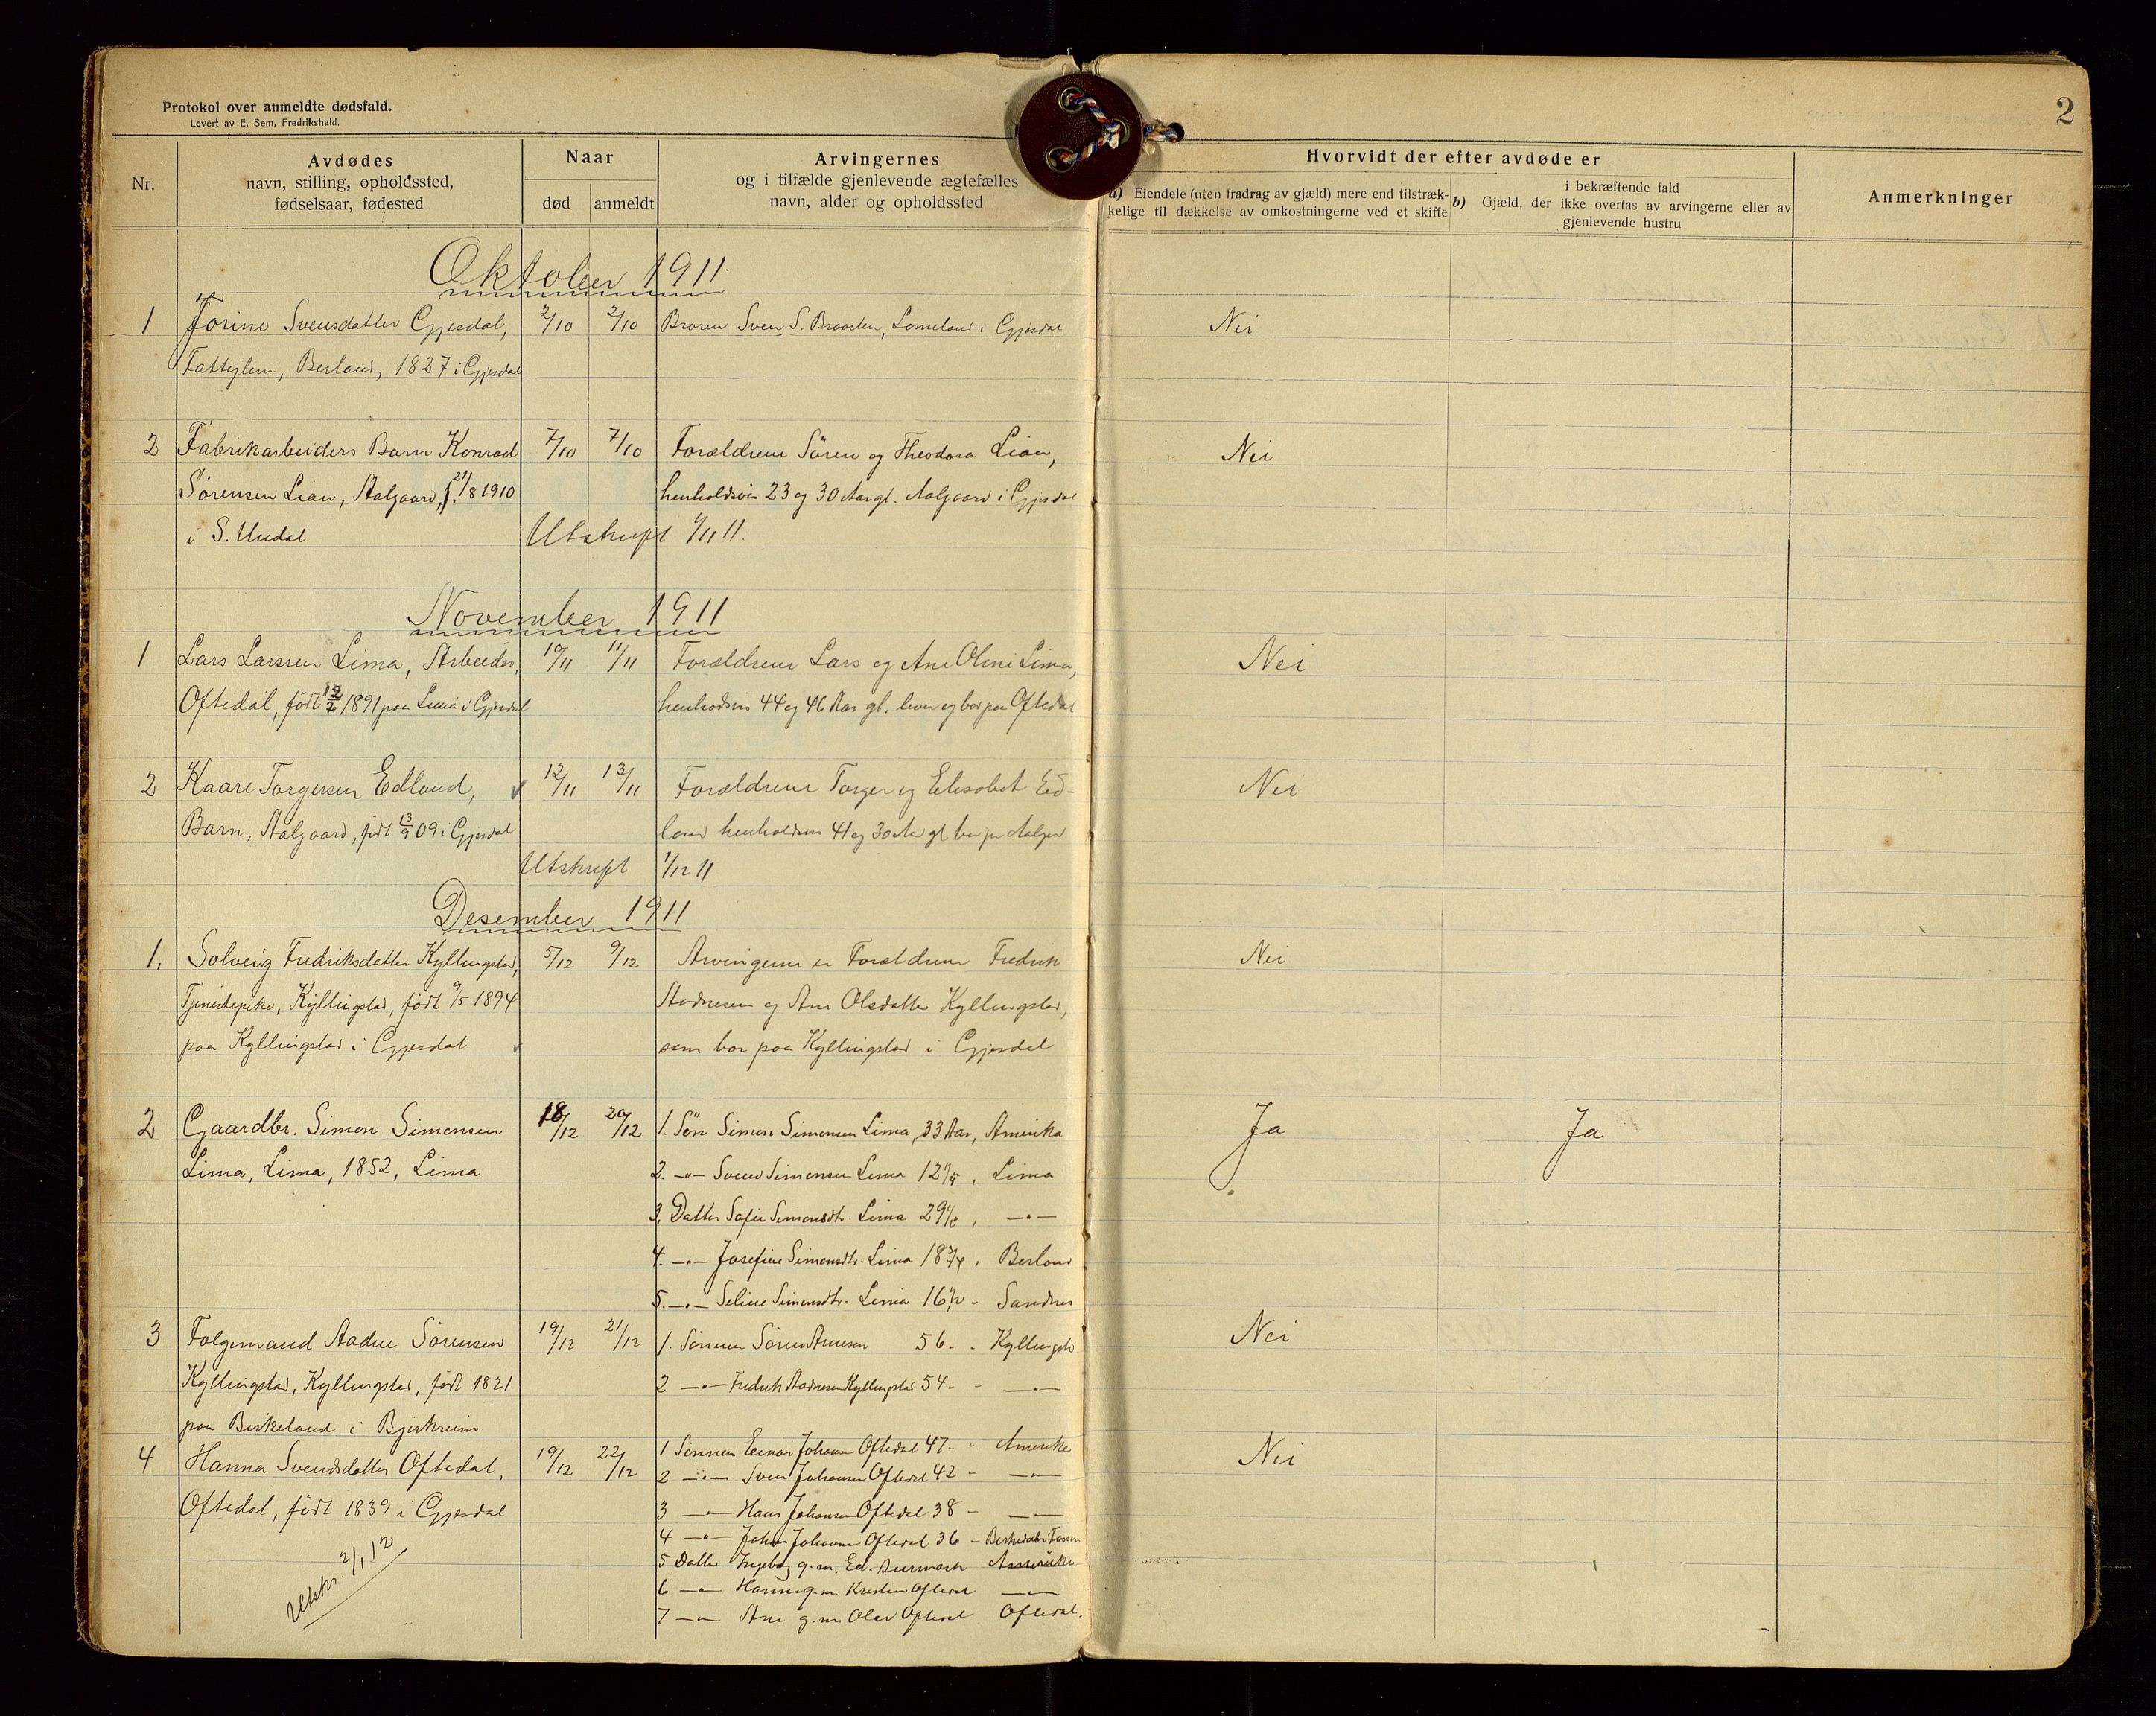 Protokol over anmeldte dødsfald.
Levert av E. Sem, Fredrikshald.
2
Nr.
Avdødes
navn, stilling, opholdssted,
fødselsaar, fødested
Naar
død
anmeldt
Arvingernes
og i tilfælde gjenlevende ægtefælles
navn, alder og opholdssted
Hvorvidt der efter avdøde er
a) Eiendele (uten fradrag av gjæld) mere end tilstræk-
kelige til dækkelse av omkostningerne ved et skifte
b) Gjæld, der
i bekræftende fald
ikke overtas av arvingerne eller av
gjenlevende hustru
Anmerkninger
Oktober 1911.
1 Jorine Svensdatter Gjesdal, 2/10 2/10 Broren Sven S. Gjesdal Nei
Berland, 1827 i Gjesdal
2 Fabrikarbeiders Barn Konrad 7/10 7/10 Forældrene Sören og Theodora Lian, Nei
Sörensen Lian, Aalgaard, f. 21/8 1910 henholdsvis 23 og 30 Aar gl. Aalgaard i Gjesdal
i S. Undal Utskrift 1/11 11.
November 1911
1 Lars Larssen Lima, Arbeider, 10/11 11/11 Forældrene Lars og Ane Oline Lima, Nei
Oftedal, født 1891 paa Lima i Gjesdal 44 og 46 Aar gl. lever og bor paa Oftedal
2 Kaare Torgersen Edland, 12/11 13/11 Forældrene Torger og Elisabet Ed- Nei
Barn, Aalgaard, født 13/9 09 i Gjesdal land henholdsvis 41 og 30 Aar gl bor paa Aalgaard
Utskrift 1/12 11
Desember 1911
1. Solveig Fredriksdatter Kyllingstad, 5/12 9/12 Arvingerne er Forældrene Fredrik Nei
Tjenestepike, Kyllingstad, født 9/5 1894 Aadnesen og Ane Olsdatter Kyllingstad,
paa Kyllingstad i Gjesdal som bor paa Kyllingstad i Gjesdal
2 Gaardbr. Simon Simonsen 18/12 20/12 1. Sön Simon Simonsen Lima, 33 Aar, Amerika Ja Ja
Lima, Lima, 1852, Lima 2. -"- Svend Simonsen Lima 12, Lima
3. Datter Sofie Simonsdtr. Lima 29, -"-
4. -"- Josefine Simonsdtr. Lima 18 3/4, Berland
5. -"- Seline Simonsdtr. Lima 16 1/2 - Sandnes
3 Folgemand Aadne Sörensen 19/12 21/12 1. Sönnen Sören 56 - - Kyllingst. Nei
Kyllingstad, Kyllingstad, født 1821 2 -"- Fredrik Aadnesen Kyllingstad 54 - - -"-
paa Birkeland i Bjerkreim
4 Hanna Svendsdatter Oftedal, 19/12 22/12 1 Sönnen Johansen Oftedal 47 - - Amerika Nei
2 -"- Sven Johansen Oftedal 42 - -"-
Oftedal, født 1839 i Gjesdal 3 -"- Hans Johansen Oftedal 38 - -"-
4 -"- Johan Johansen Oftedal 36 -
5 Datter Ingeborg g. m. Ed. Amerika
6 -"- Hanne g. m. Kristen Oftedal -"-
7 -"- Ane g. m. Olav Oftedal Oftedal.
Utskr. 2/1 12